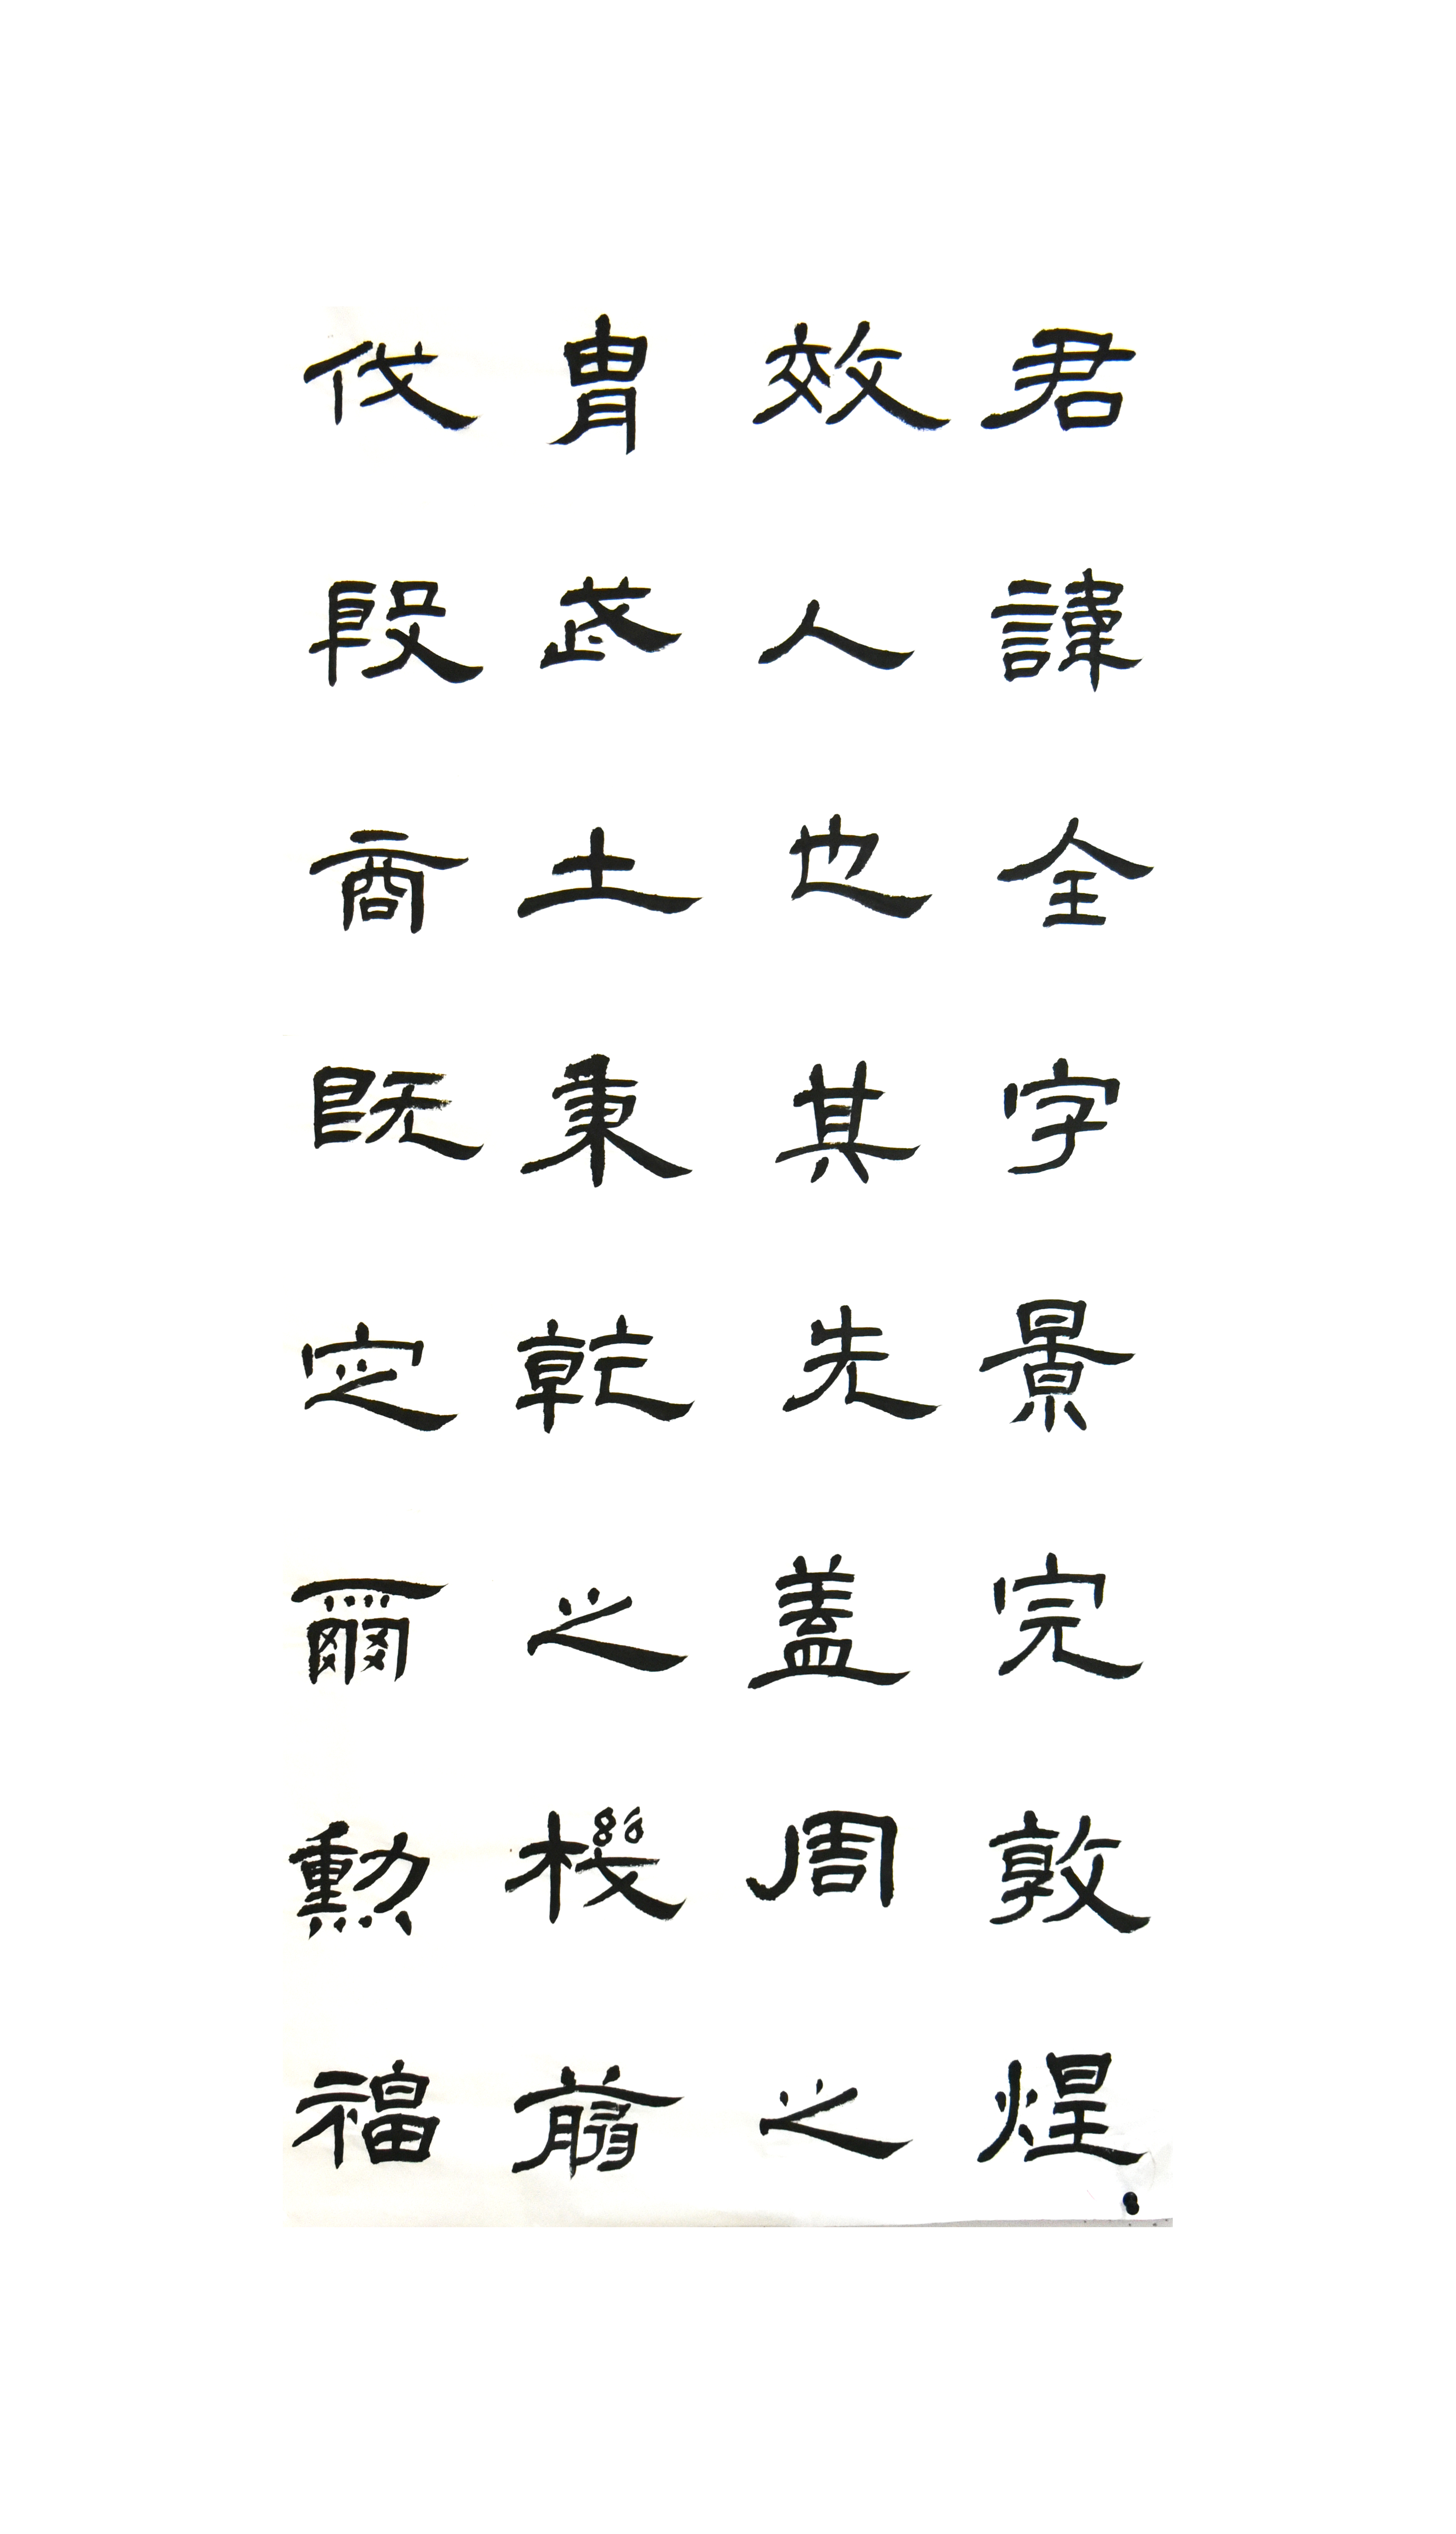 君諱全字景完敦煌
效人也其先蓋周之
胄武土秉乾之機翦
伐殷商既定爾勳福